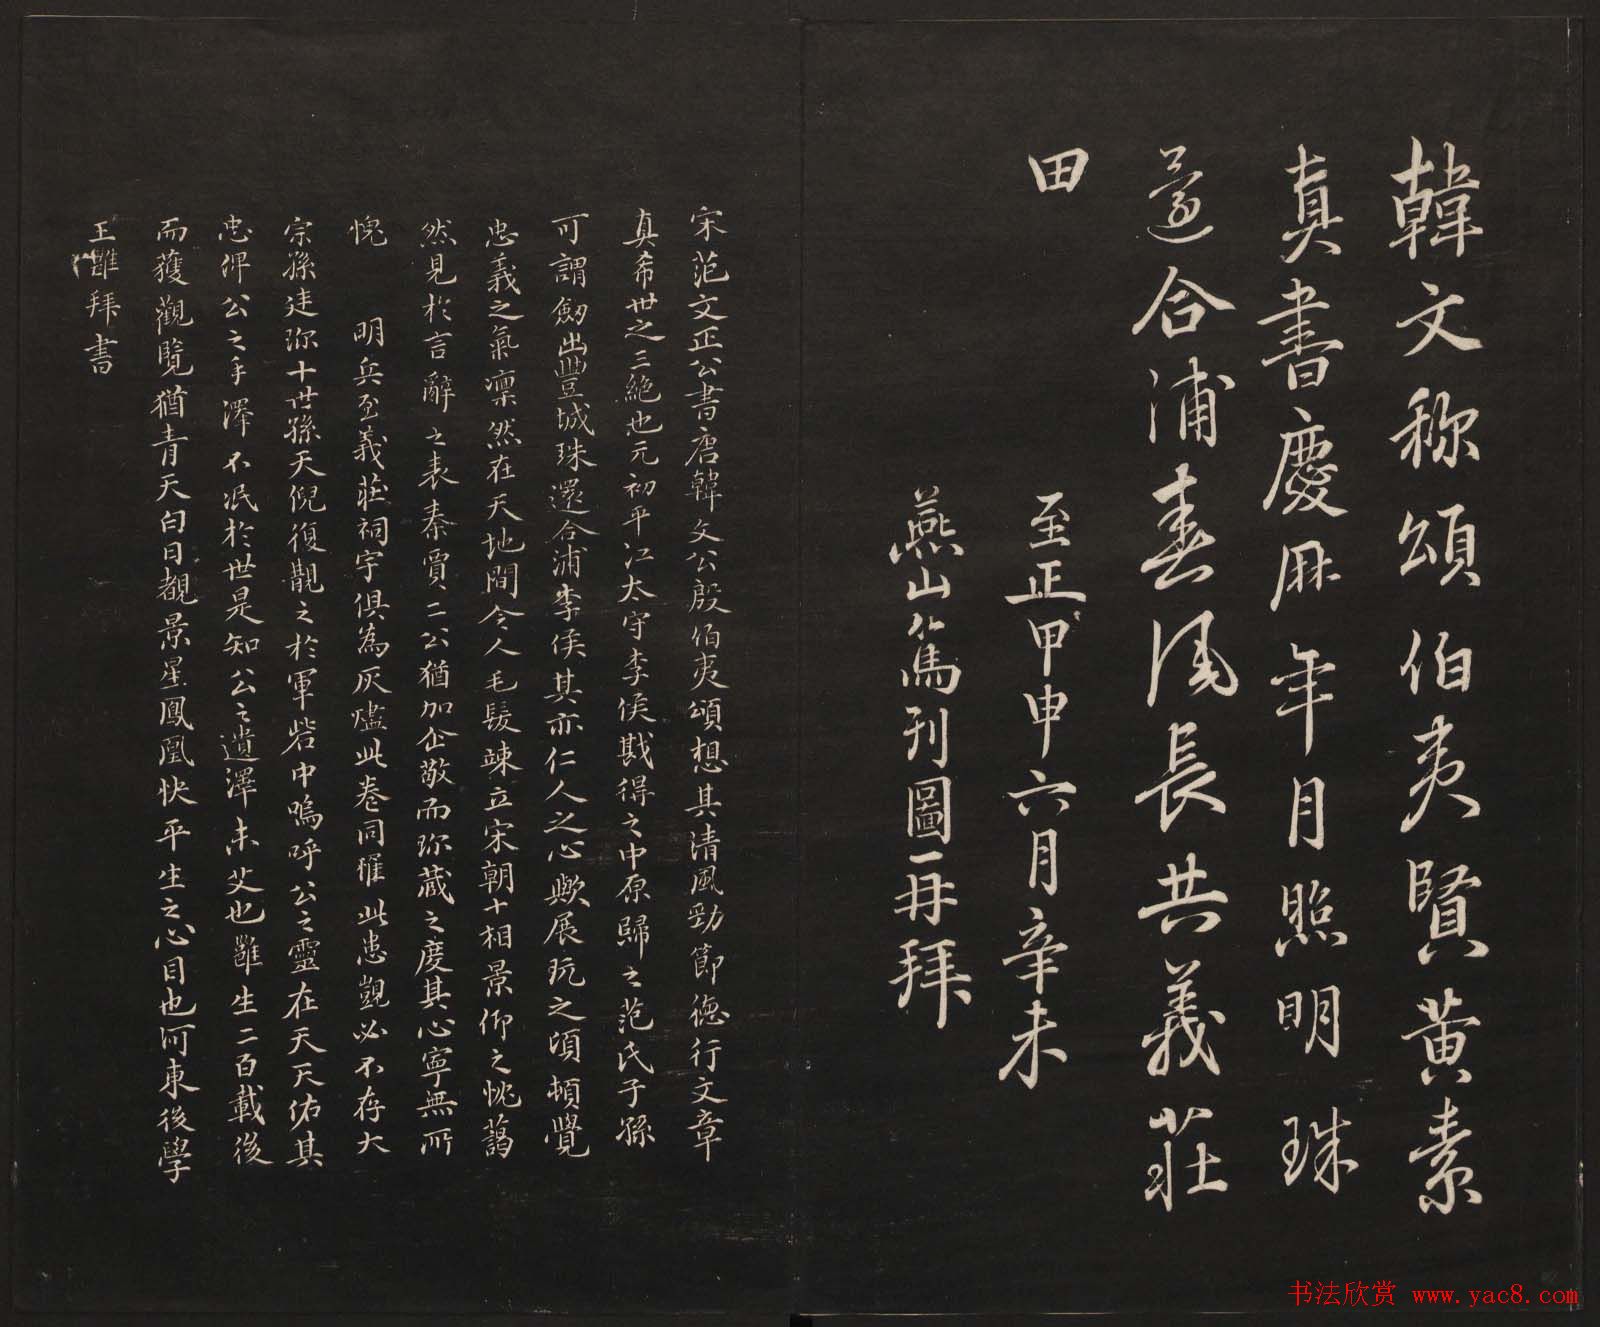 韓文称頌伯夷賢黄素
真書慶厤年月照明珠
還合浦春風長共義莊
田
至正甲申六月辛未
燕山篤列圖再拜
宋范文正公書唐韓文公殷伯夷頌想其清風勁節德行文章
真希世之三絶也元初平江太守李侯戡得之中原歸之范氏子孫
可謂劔出豐城珠還合浦李侯其亦仁人之心歟展玩之頃頓覺
忠義之氣凛然在天地間令人毛髮竦立宋朝十相景仰之愧藹
然見於言辭之表秦賈二公猶加企敬而珎藏之度其心寧無所
愧 明兵至義莊祠宇俱為灰燼此卷同罹此患覬必不存大
宗孫廷珎十世孫天倪復覩之於軍砦中嗚呼公之靈在天天佑其
忠俾公之手澤不泯於世是知公之遺澤未艾也雝生二百載後
而獲觀覧猶青天白日覩景星鳳凰快平生之心目也河東後學
王雝拜書
书法欣赏 www.yac8.com